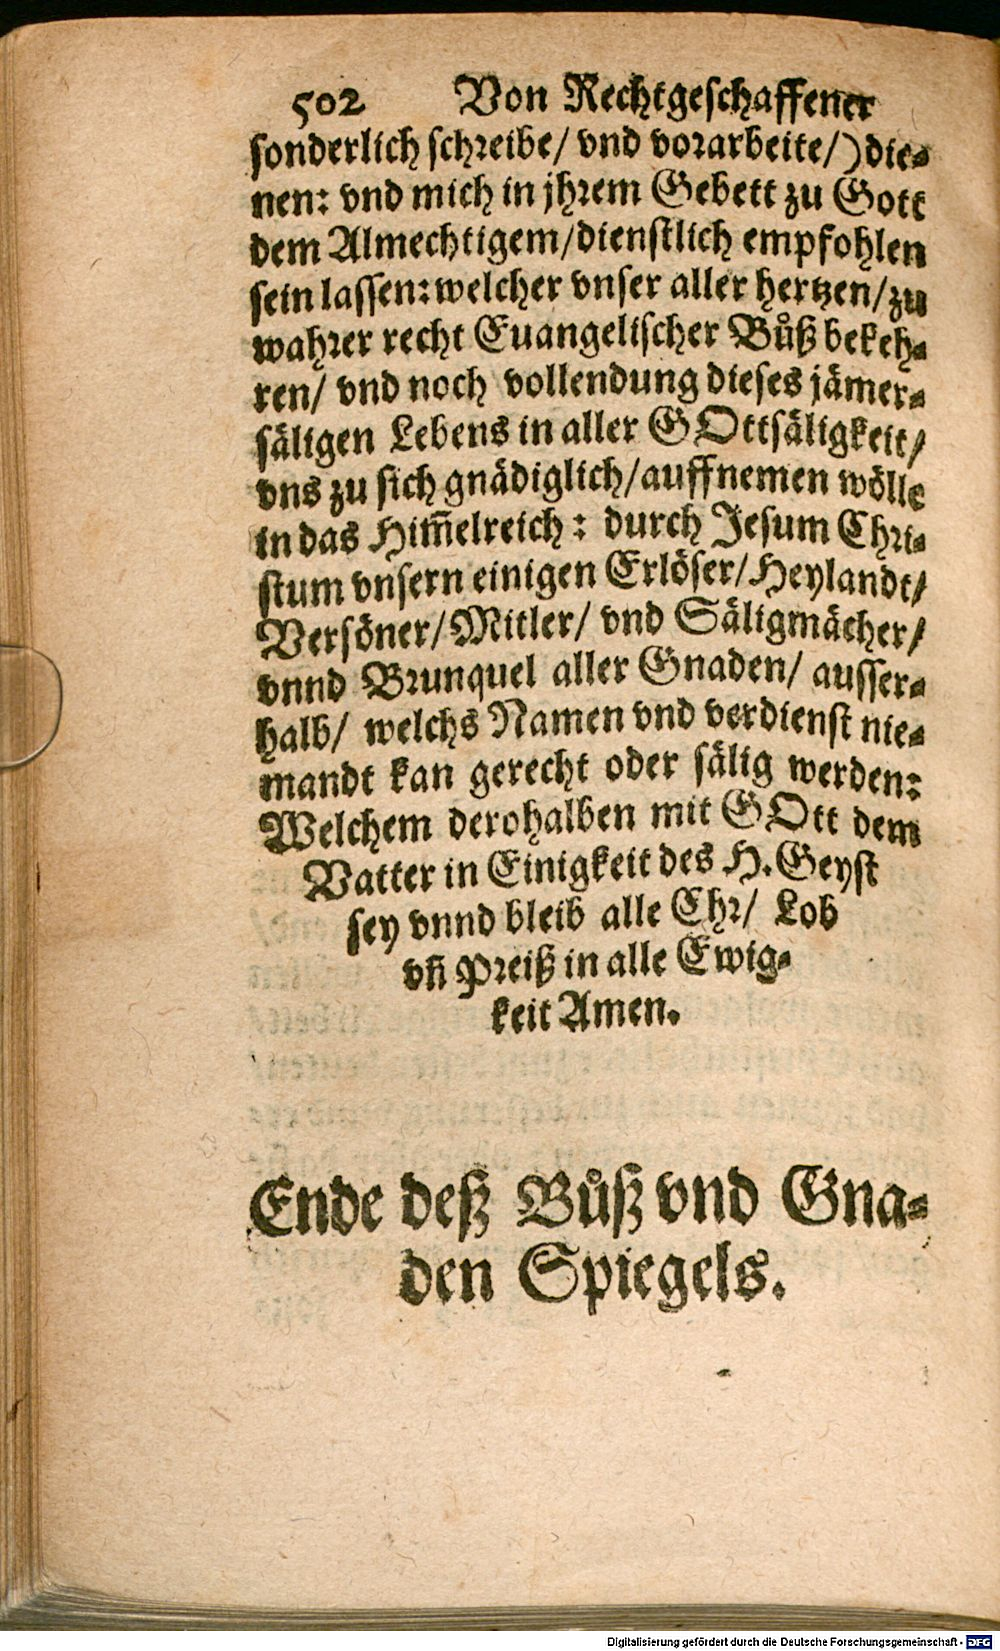 502 Von Rechtgeschaffener
sonderlich schreibe/ vnd vorarbeite/) die-
nen: vnd mich in jhrem Gebett zu Gott
dem Almechtigem/dienstlich empfohlen
sein lassen: welcher vnser aller hertzen/zu
wahrer recht Euangelischer Bůß bekeh-
ren/ vnd noch vollendung dieses jämer-
säligen Lebens in aller GOttsäligkeit/
vns zu sich gnädiglich/auffnemen wölle
in das Him̃elreich: durch Jesum Chri-
stum vnsern einigen Erlöser/Heylandt/
Versöner/Mitler/ vnd Säligmächer/
vnnd Brunquel aller Gnaden/ ausser-
halb/ welchs Namen vnd verdienst nie-
mandt kan gerecht oder sälig werden:
Welchem derohalben mit GOtt dem
Vatter in Einigkeit des H. Geyst
sey vnnd bleib alle Ehr/ Lob
vñ Preiß in alle Ewig-
keit Amen.
Ende deß Bůß vnd Gna-
den Spiegels.
Digitalisierung gefördert durch die Deutsche Forschungsgemeinschaft - DFG